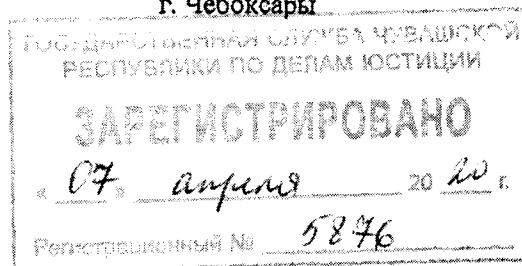 г. Чебоксары
ГОСУДАРСТВЕННАЯ СЛУЖБА ЧУВАШСКОЙ
РЕСПУБЛИКИ ПО ДЕЛАМ ЮСТИЦИИ
ЗАРЕГИСТРИРОВАНО
« 07 » апреля 20 20 г.
Регистрационный № 5876